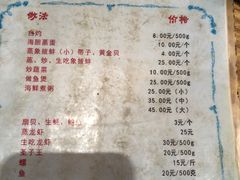 炒法 价格
白灼 8.00元/500g
海胆蒸蛋 10.00元/个
蒸象拔蚌(小)带子、黄金贝 4.00元/个
蒸、炒、生吃象拔蚌 25.00元/500g
炒蔬菜 10.00元
做鱼煲 25.00元/500g
海鲜煮粥 25.00元(小)
35.00元(中)
45.00元(大)
扇贝、生蚝、 3元/个
蒸龙虾 25元
生吃龙虾 30元/500g
圣子王 20元/500g
螺 15元/斤
鱼 20元/500克